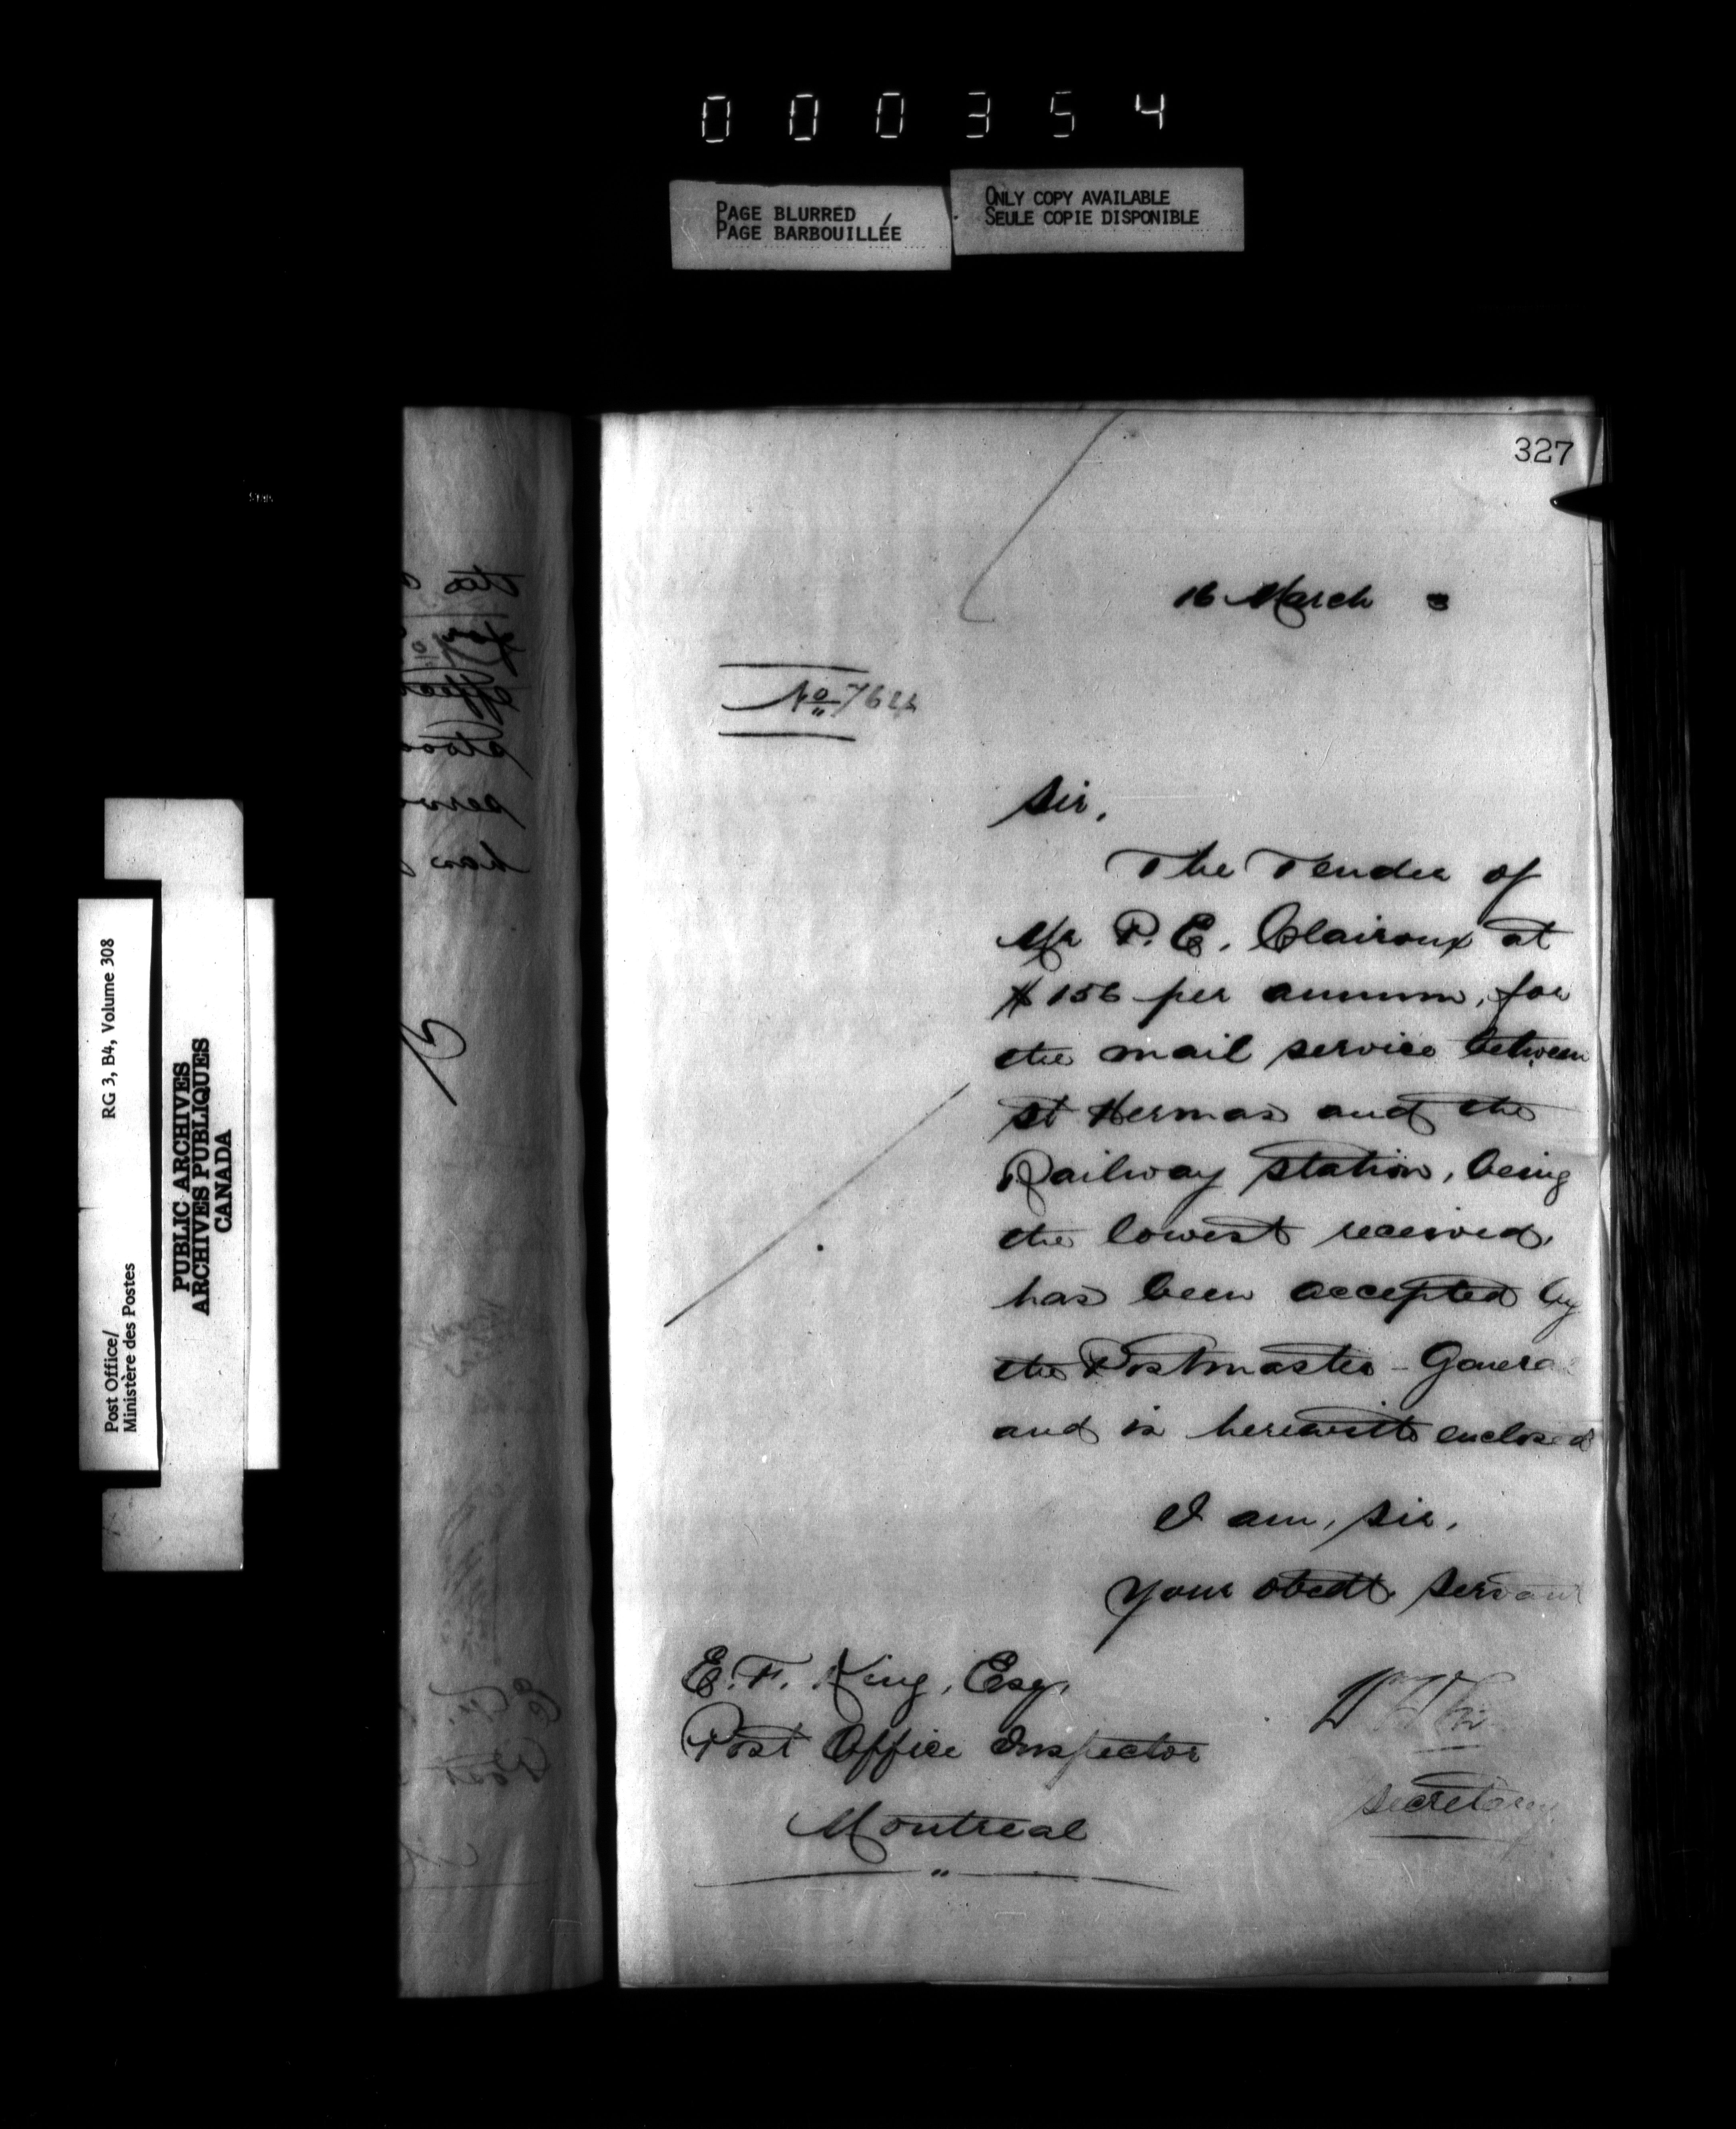 000354
PAGE BLURRED
PAGE BARBOUILLÉE
ONLY COPY AVAILABLE
SEULE COPIE DISPONIBLE
RG 3, B4, Volume 308
Post Office/
Ministère des Postes
PUBLIC ARCHIVES
ARCHIVES PUBLIQUES
CANADA
327
16 March 3
No 764
Sir,
The Tender of
Mr P. E. Clairoux at
$156 per annum, for
the mail service between
St Hermas and the
Railway Station, being
the lowest received,
has been accepted by
the Postmaster-General
and is herewith enclosed
I am, Sir,
Your obedt. Servant
Secretary
E. F. King, Esq,
Post Office Inspector
Montreal